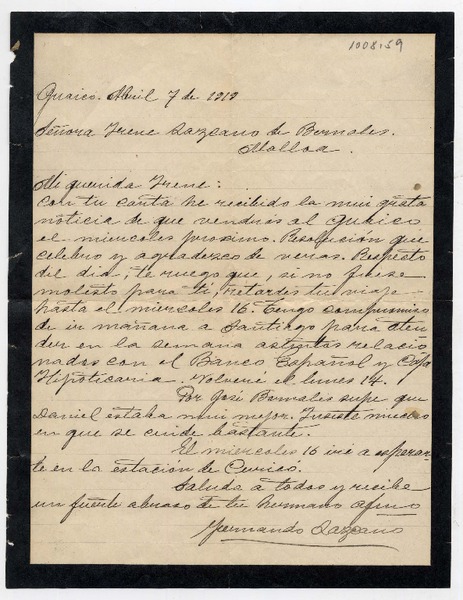 1008.59
Quaico. Abril 7 de 1919
Señora Irene Lazcano de Bernales.
Malloa.
Mi querida Irene:
Con tu carta he recibido la mui grata
noticia de que vendrás al Quaico
el miercoles proximo. Resolucion que
celebro y agradezco de veras. Respecto
del dia, te ruego que, si no fuese
molesto para ti, retardes tu viaje
hasta el miercoles 16. Tengo compromiso
de ir mañana a Santiago para aten
der en la semana asuntos relacio
nados con el Banco Español y Caja
Hipotecaria. Volveré el lunes 14.
Por José Bernales supe que
Daniel estaba mui mejor. Insiste mucho
en que se cuide bastante.
El miercoles 16 iré a esperar-
te en la estacion de Curicó.
Saluda a todos y recibe
un fuerte abrazo de tu hermano afmo
Fernando Lazcano